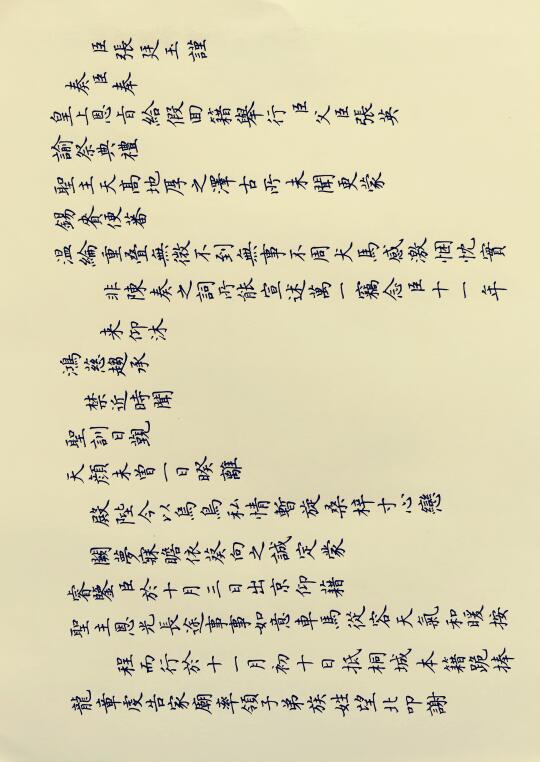 臣張廷玉謹
奏臣奉
皇上恩旨給假回籍舉行臣父臣張英
諭祭典禮
聖主天高地厚之澤古所未聞更蒙
錫賚便蕃
溫綸重疊無微不到無事不周犬馬感激悃忱實
非陳奏之詞所能宣述萬一竊念臣十一年
来仰沐
鴻慈趨承
禁近時聞
聖訓日覲
天顏未曾一日暌離
殿陛今以烏鳥私情暫旋桑梓寸心戀
闕夢寐瞻依葵向之誠定蒙
睿鑒臣於十月三日出京仰籍
聖主恩光長途事事如意車馬從容天氣和暖按
程而行於十一月初十日抵桐城本籍跪捧
龍章虔告家廟率領子弟族姓望北叩謝